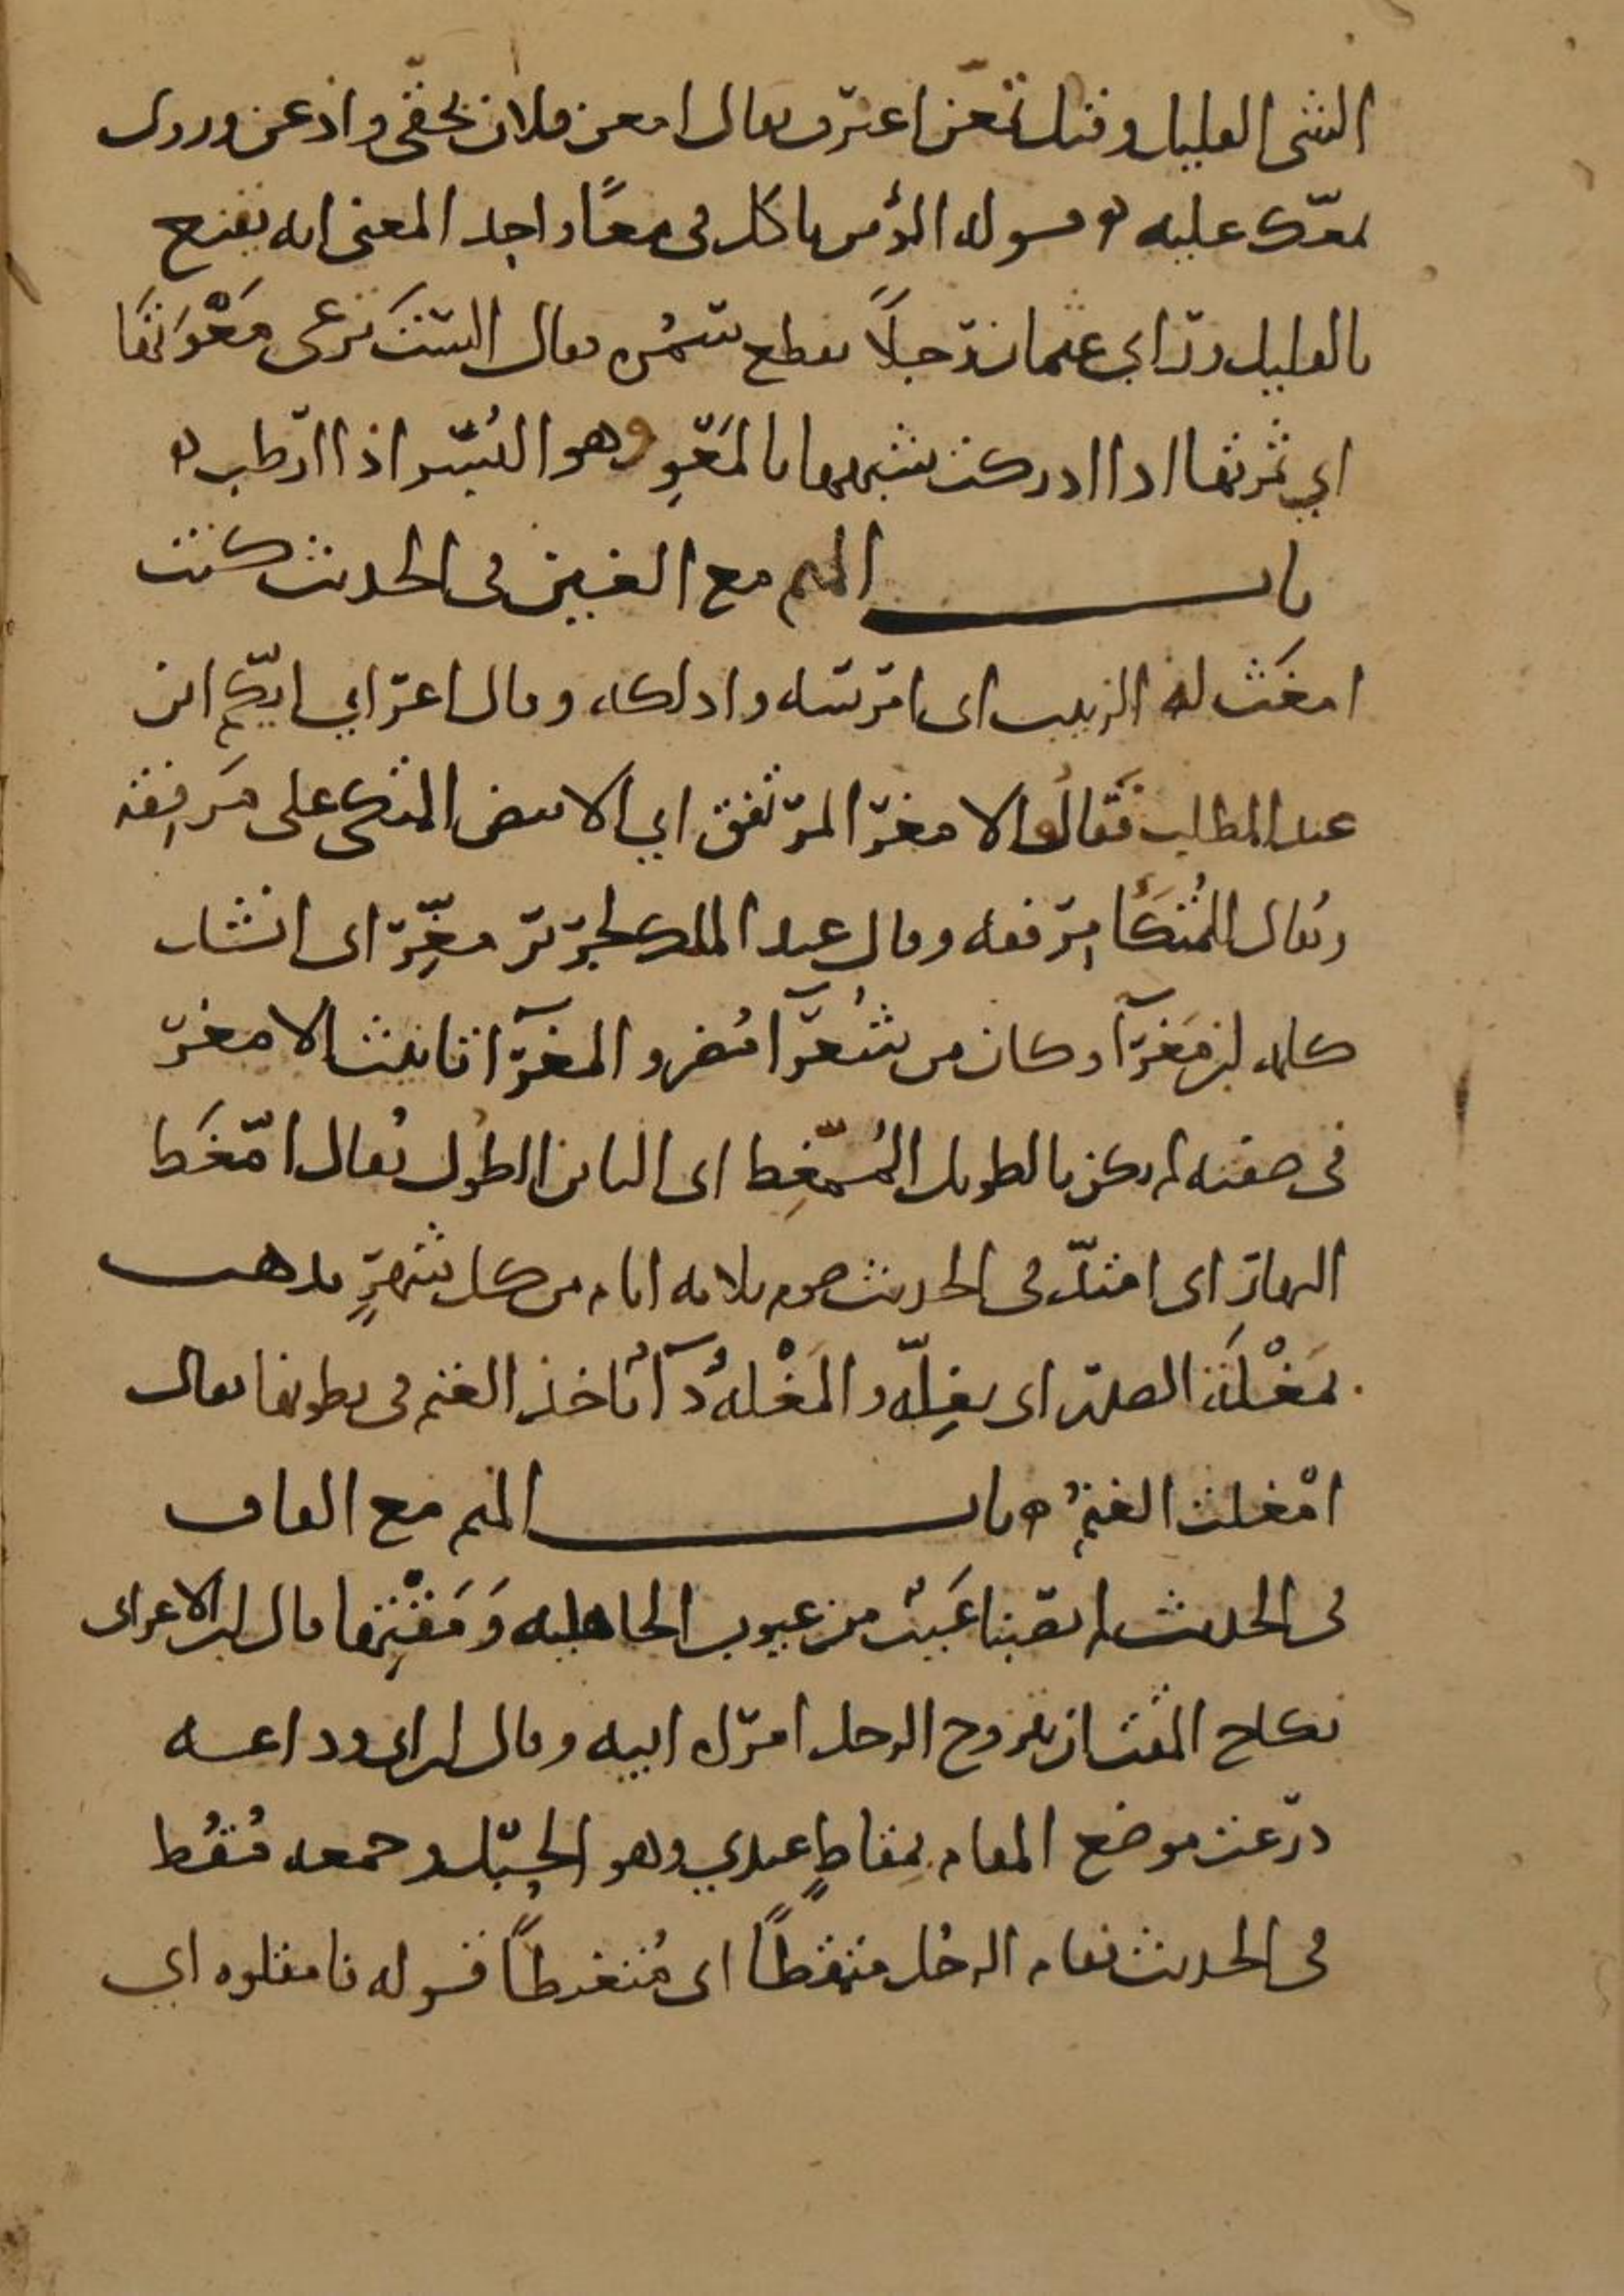 الشي القليل وقيل تمعن اعترف يقال امعن فلان بحقي واذعن وروى
تمعك عليه ه قوله المؤمن ياكل في معًا واحد المعنى انه يقنع
بالقليل وراى عثمان رجلًا يقطع سمره فقال الستَ ترعى مَعْوَتها
اي ثمرتها اذا ادركت شبهها بالمَعْوِ وهو البُسر اذا ارطب ه
باب الميم مع الغين في الحديث كنت
امغَث له الزبيب اى امرسه وادلكه وقال اعرابي ايّكم ابن
عبد المطلب فقالوا الامغر المرتفق اي الابيض المتكى على مَرفِقه
ويقال للمُتكأ مِرفقه وقال عبد الملك لجرير مغِّر اى انشد
كلمه ابن مَغرآ وكان من شُعرآ مُضر والمغرآ تانيث الامغر
في صفته لم يكن بالطويل المُمّغِط اى الباين الطول يُقال امّغَط
النهارُ اى امتدّ في الحديث صوم ثلاثه ايام من كل شهرٍ يذهب
بمَغْلَة الصدر اى بغِلّه والمَغْلهُ دآ يُاخذ الغنم في بطونها يقال
امْغلت الغنمُ ه باب الميم مع القاف
في الحديث لم يصبنا عَيبٌ من عيوب الجاهليه وَمَقْتِها قال ابن الاعرابى
نكاح المقت ان يتزوج الرجل امراه ابيه وقال ابن ابى وداعه
ذرعت موضع المقام بمقاطٍ عندي وهو الحبل وجمعه مُقُط
في الحديث فقام الرجُل متمقطًا اى مُتغيظًا قوله فامقلوه اي